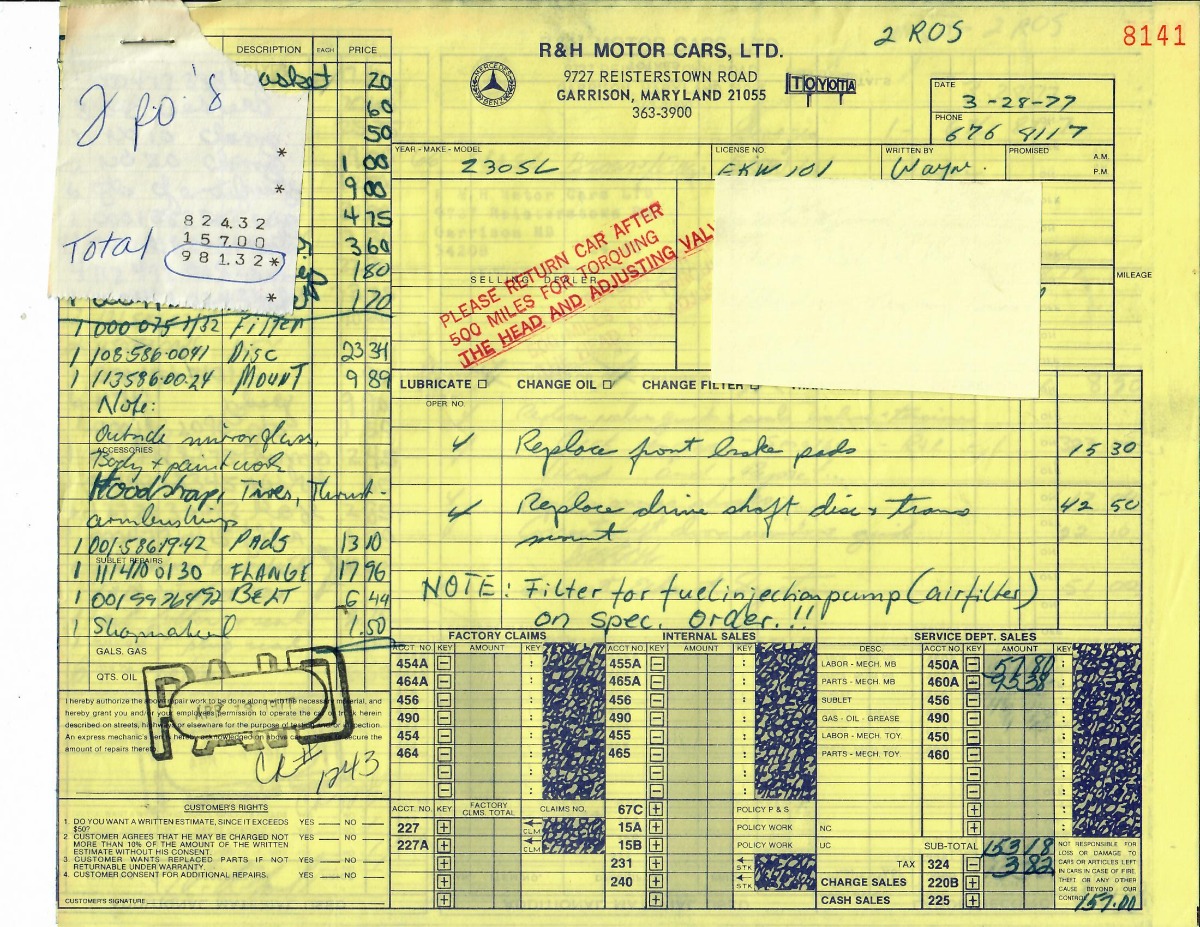 2 ROS
8141
R&H MOTOR CARS, LTD.
9727 REISTERSTOWN ROAD
GARRISON, MARYLAND 21055
363-3900
MERCEDES BENZ
TOYOTA
DATE
3-28-77
PHONE
676 8117
YEAR - MAKE - MODEL
230SL
LICENSE NO.
EKW 101
WRITTEN BY
Wayne
PROMISED
A.M.
P.M.
MILEAGE
SELLING DEALER
PLEASE RETURN CAR AFTER
500 MILES FOR TORQUING
THE HEAD AND ADJUSTING VALV
2 Ro's
*
*
824.32
157.00
Total 981.32*
*
DESCRIPTION EACH PRICE
20
60
50
1 00
9 00
4 75
3 60
1 80
1 70
1 Filter
1 108-586-0041 Disc 23 34
1 113586-00-24 Mount 9 89
Note:
Outside mirror glass,
ACCESSORIES
Body + paint work
Hood strap, Tires, Thrust-
arm bushings
1 001-5861942 PADS 13 10
SUBLET REPAIRS
1 1114100130 FLANGE 17 96
1 0019976492 BELT 6 44
1 Shop material 1.50
GALS. GAS
QTS. OIL
LUBRICATE CHANGE OIL CHANGE FILTER
OPER. NO.
4 Replace front brake pads 15 30
4 Replace drive shaft disc + trans 42 50
mount
NOTE: Filter for fuel injection pump (air filter)
on spec. order.!!
FACTORY CLAIMS INTERNAL SALES SERVICE DEPT. SALES
ACCT NO. KEY AMOUNT KEY ACCT NO. KEY AMOUNT KEY DESC. ACCT NO. KEY AMOUNT KEY
454A 455A LABOR - MECH. MB 450A 57.80
464A 465A PARTS - MECH. MB 460A 95.38
456 456 SUBLET 456
490 490 GAS - OIL - GREASE 490
454 455 LABOR - MECH. TOY. 450
464 465 PARTS - MECH. TOY. 460
ACCT. NO. KEY FACTORY CLMS. TOTAL CLAIMS NO. 67C POLICY P & S
227 CLM 15A POLICY WORK NC
227A CLM 15B POLICY WORK UC SUB-TOTAL 153.18
231 STK TAX 324 3.82
240 STK CHARGE SALES 220B
CASH SALES 225 157.00
NOT RESPONSIBLE FOR
LOSS OR DAMAGE TO
CARS OR ARTICLES LEFT
IN CARS IN CASE OF FIRE,
THEFT OR ANY OTHER
CAUSE BEYOND OUR
CONTROL
PAID
I hereby authorize the above repair work to be done along with the necessary material, and
hereby grant you and/or your employees permission to operate the car or truck herein
described on streets, highways or elsewhere for the purpose of testing and/or inspection.
An express mechanic's lien is hereby acknowledged on above car or truck to secure the
amount of repairs thereto.
CR# 1243
CUSTOMER'S RIGHTS
1. DO YOU WANT A WRITTEN ESTIMATE, SINCE IT EXCEEDS $50? YES NO
2 CUSTOMER AGREES THAT HE MAY BE CHARGED NOT YES NO
MORE THAN 10% OF THE AMOUNT OF THE WRITTEN
ESTIMATE WITHOUT HIS CONSENT.
3. CUSTOMER WANTS REPLACED PARTS IF NOT YES NO
RETURNABLE UNDER WARRANTY.
4. CUSTOMER CONSENT FOR ADDITIONAL REPAIRS. YES NO
CUSTOMER'S SIGNATURE